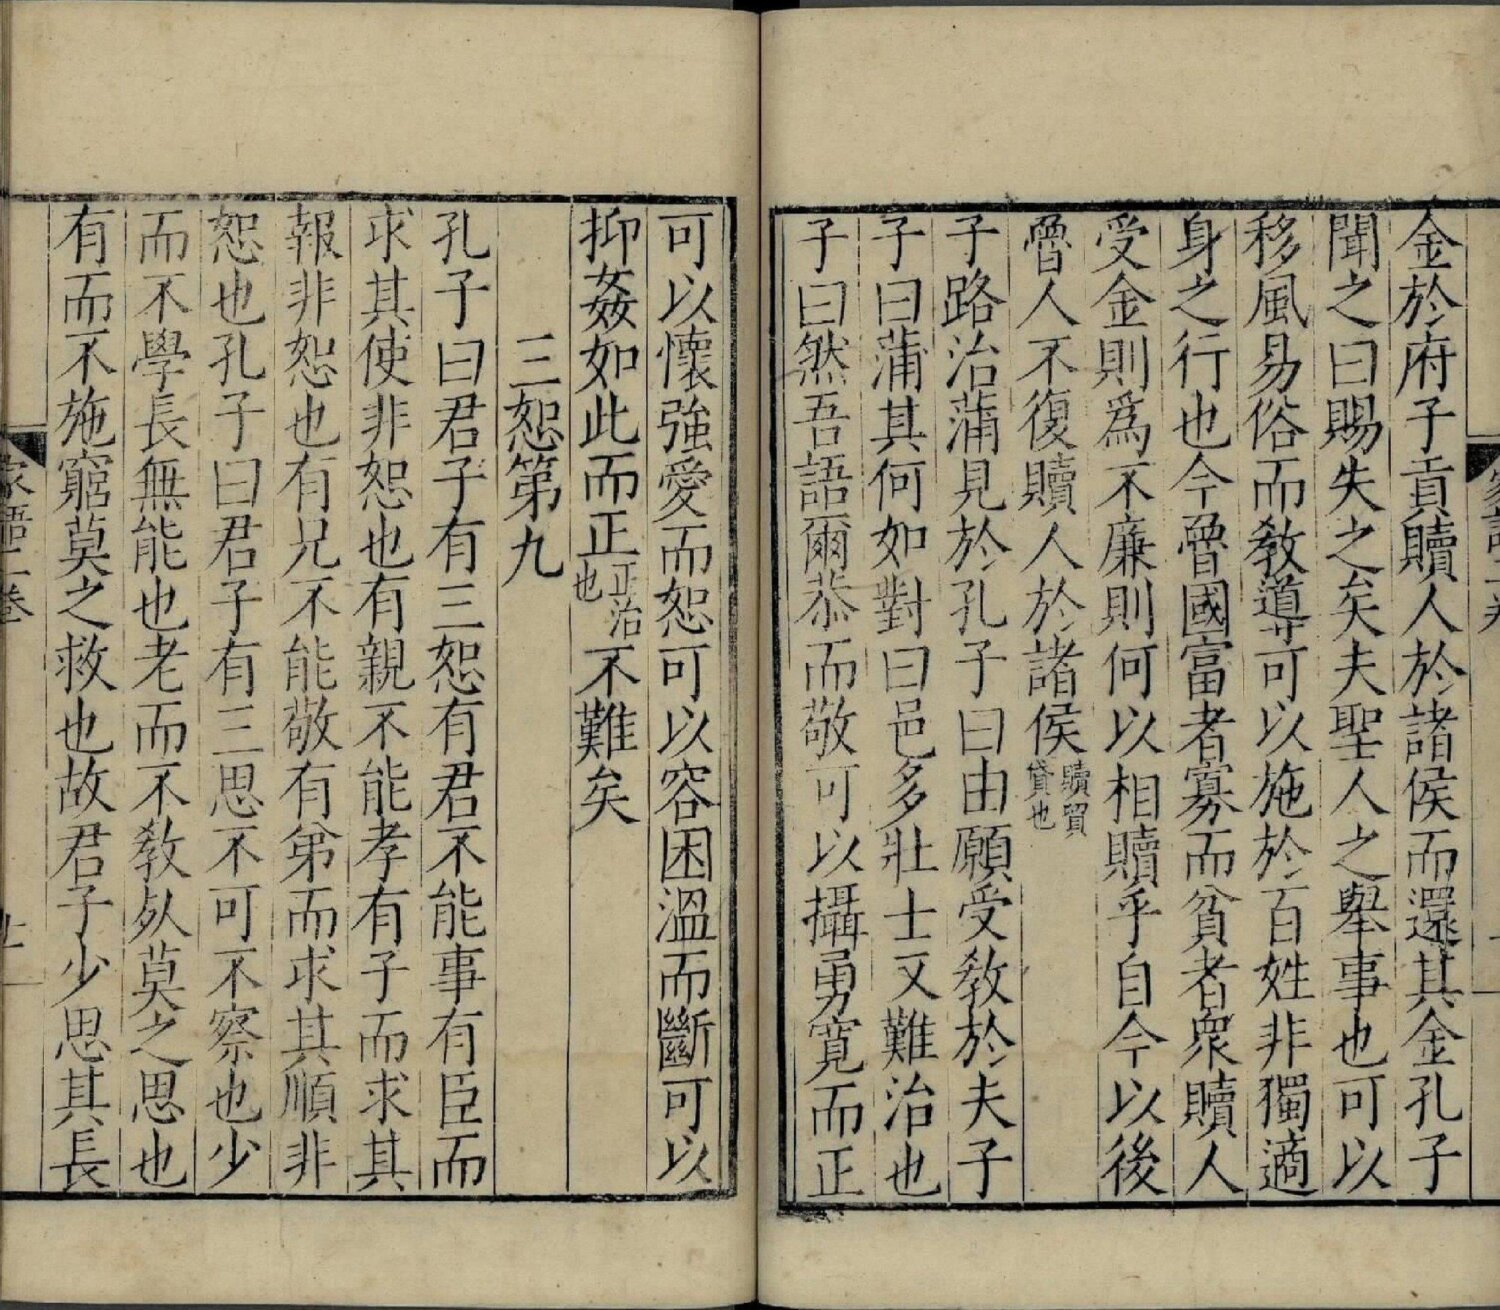 金於府子貢贖人於諸侯而還其金孔子
聞之曰賜失之矣夫聖人之舉事也可以
移風易俗而敎導可以施於百姓非獨適
身之行也今魯國富者寡而貧者衆贖人
受金則爲不廉則何以相贖乎自今以後
魯人不復贖人於諸侯贖貿貸也
子路治蒲見於孔子曰由願受敎於夫子
子曰蒲其何如對曰邑多壯士又難治也
子曰然吾語爾恭而敬可以攝勇寬而正
可以懷強愛而恕可以容困溫而斷可以
抑姦如此而正正治也不難矣
三恕第九
孔子曰君子有三恕有君不能事有臣而
求其使非恕也有親不能孝有子而求其
報非恕也有兄不能敬有弟而求其順非
恕也孔子曰君子有三思不可不察也少
而不學長無能也老而不敎死莫之思也
有而不施窮莫之救也故君子少思其長
家語二卷